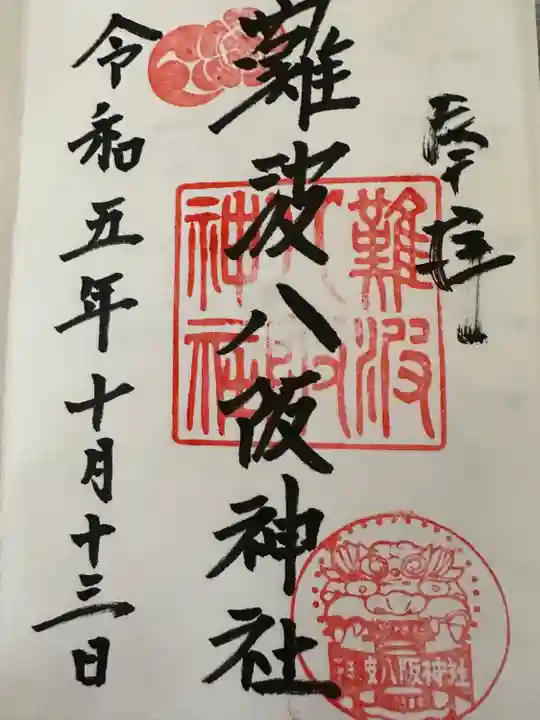 奉拝
難波八阪神社
令和五年十月十三日
難波
八阪
神社
難波八阪神社